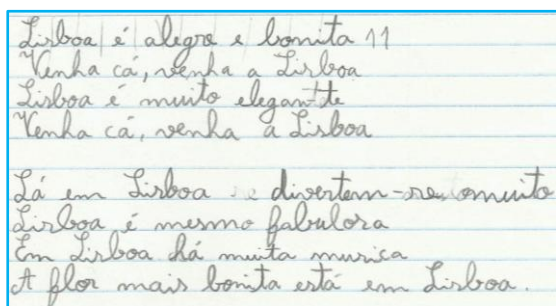 Lisboa é alegre e bonita 11
Venha cá, venha a Lisboa
Lisboa é muito elegante
Venha cá, venha a Lisboa
Lá em Lisboa divertem-se muito
Lisboa é mesmo fabulosa
Em Lisboa há muita musica
A flor mais bonita está em Lisboa.